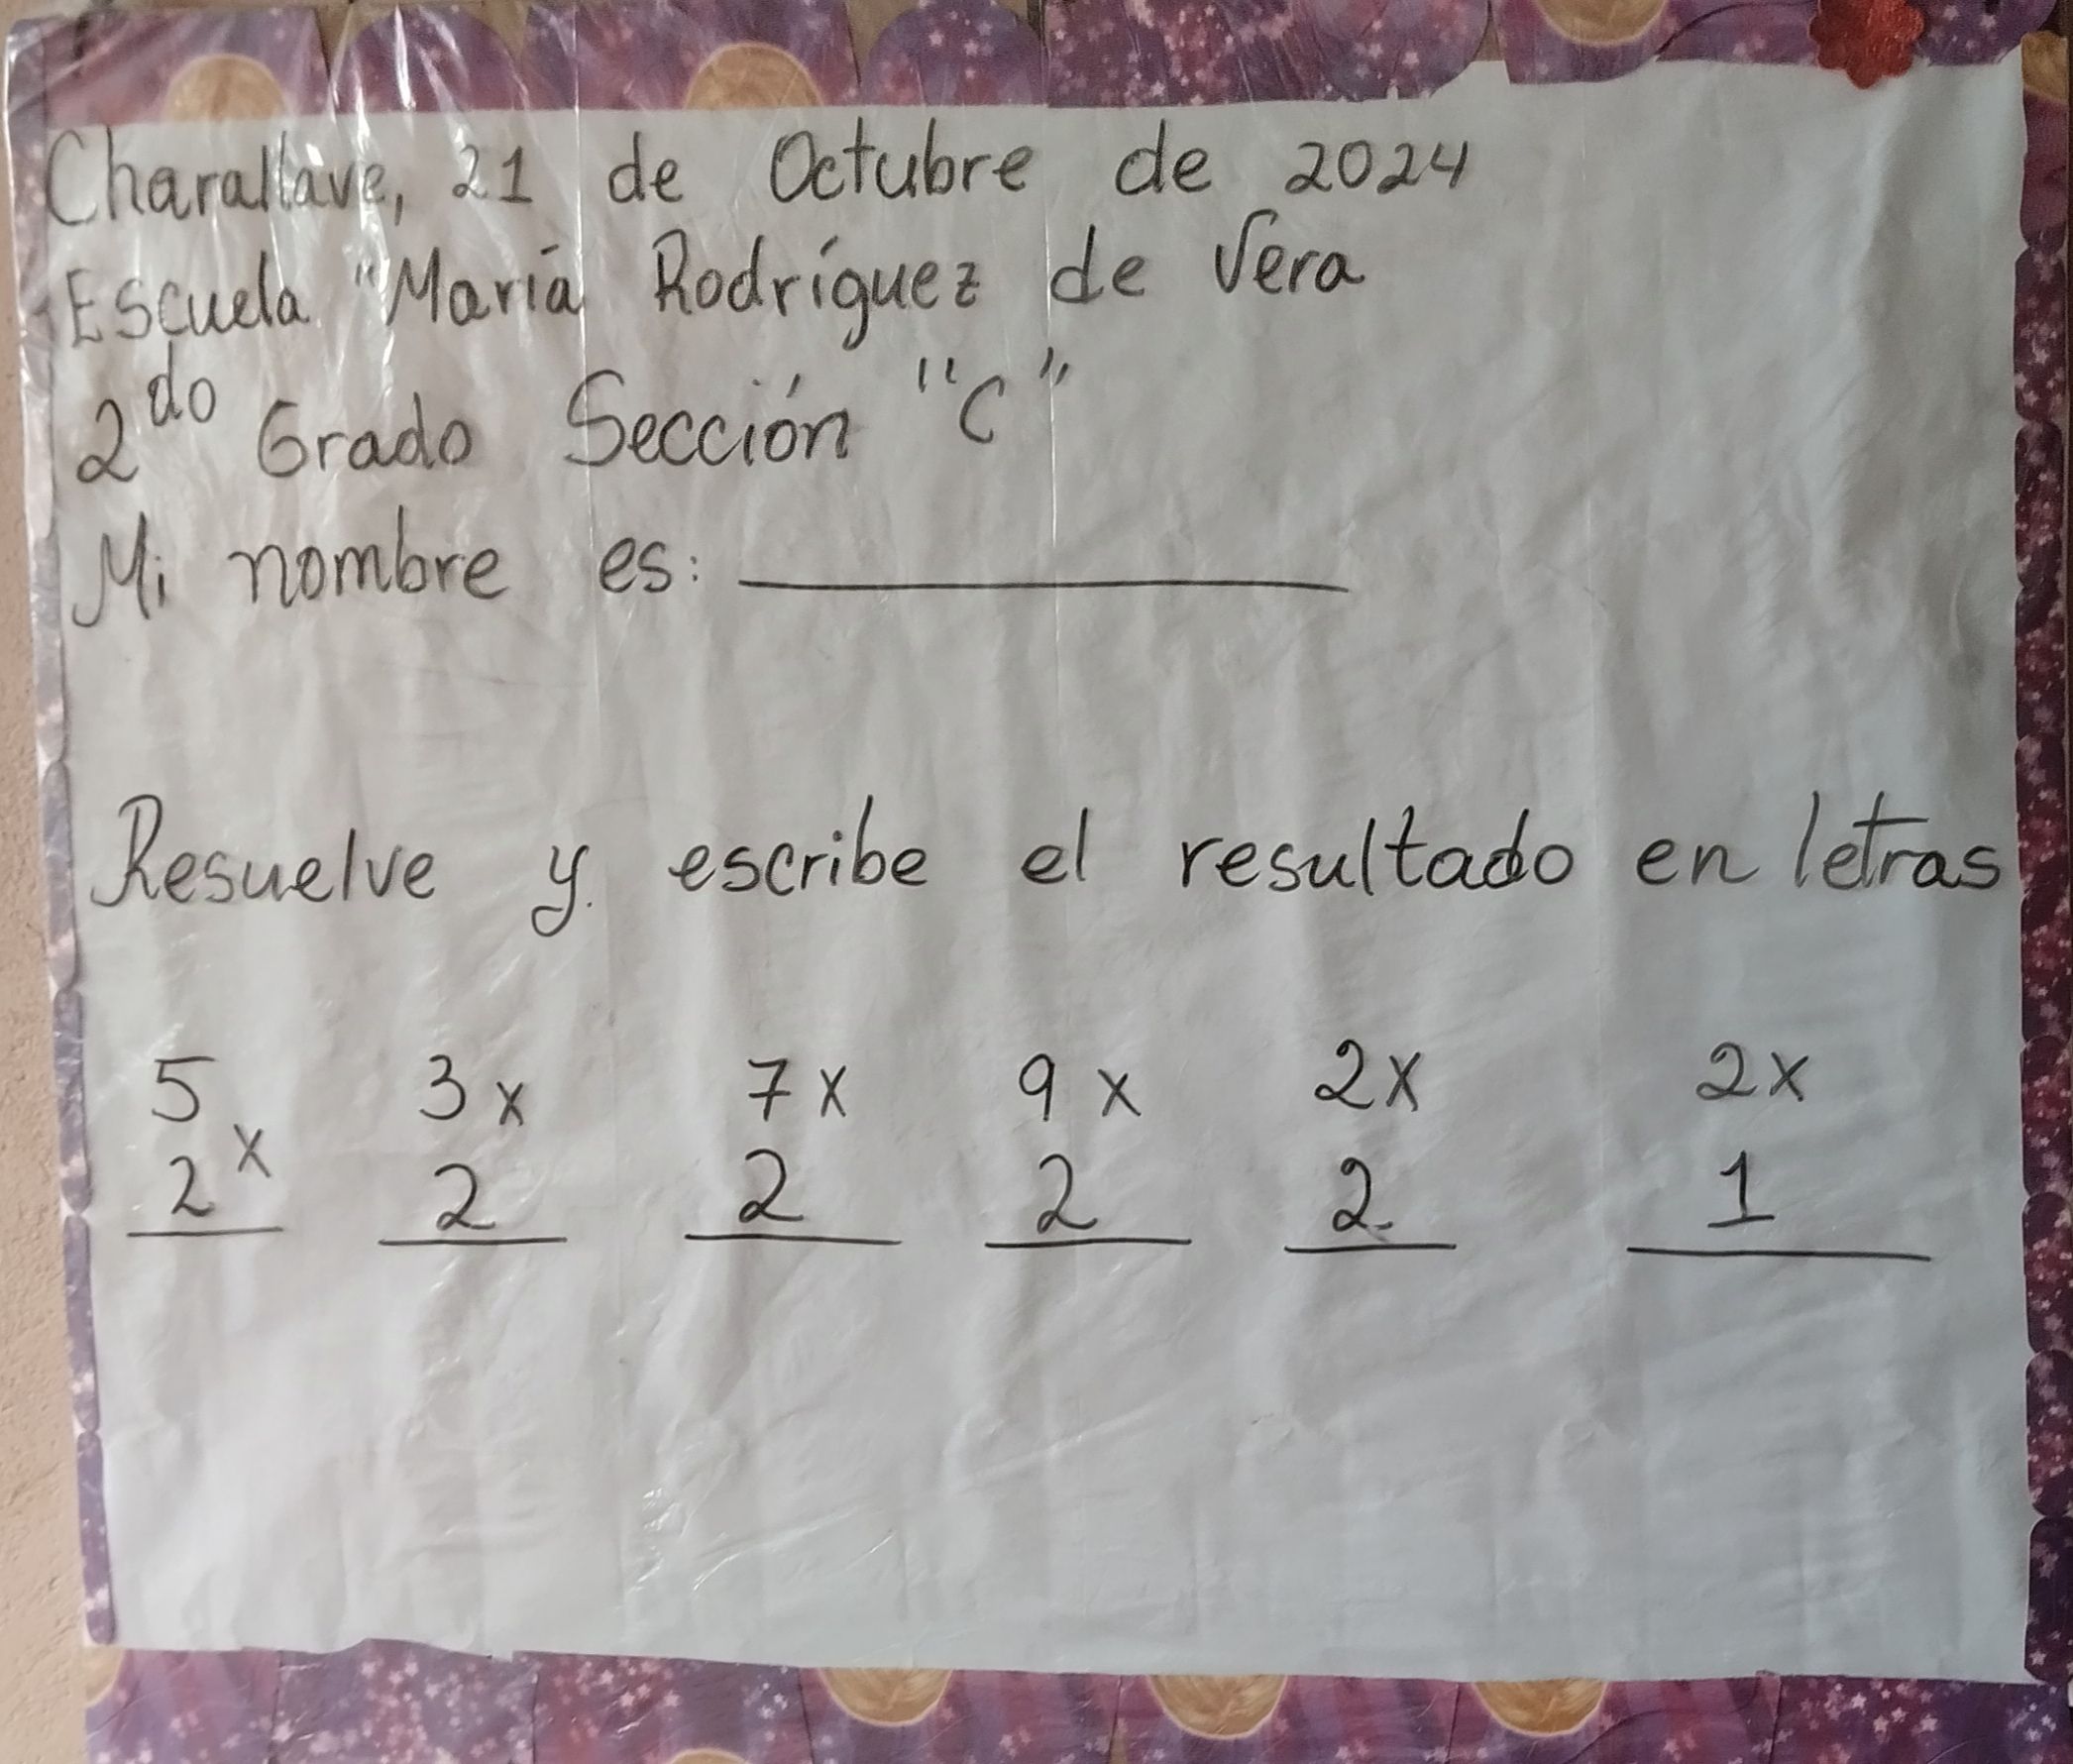 Charallave, 21 de Octubre de 2024
Escuela "María Rodríguez de Vera
2do Grado Sección "C"
Mi nombre es: ____________
Resuelve y. escribe el resultado en letras
5 x 3 x 7 x 9 x 2 x 2 x
2 2 2 2 2 1